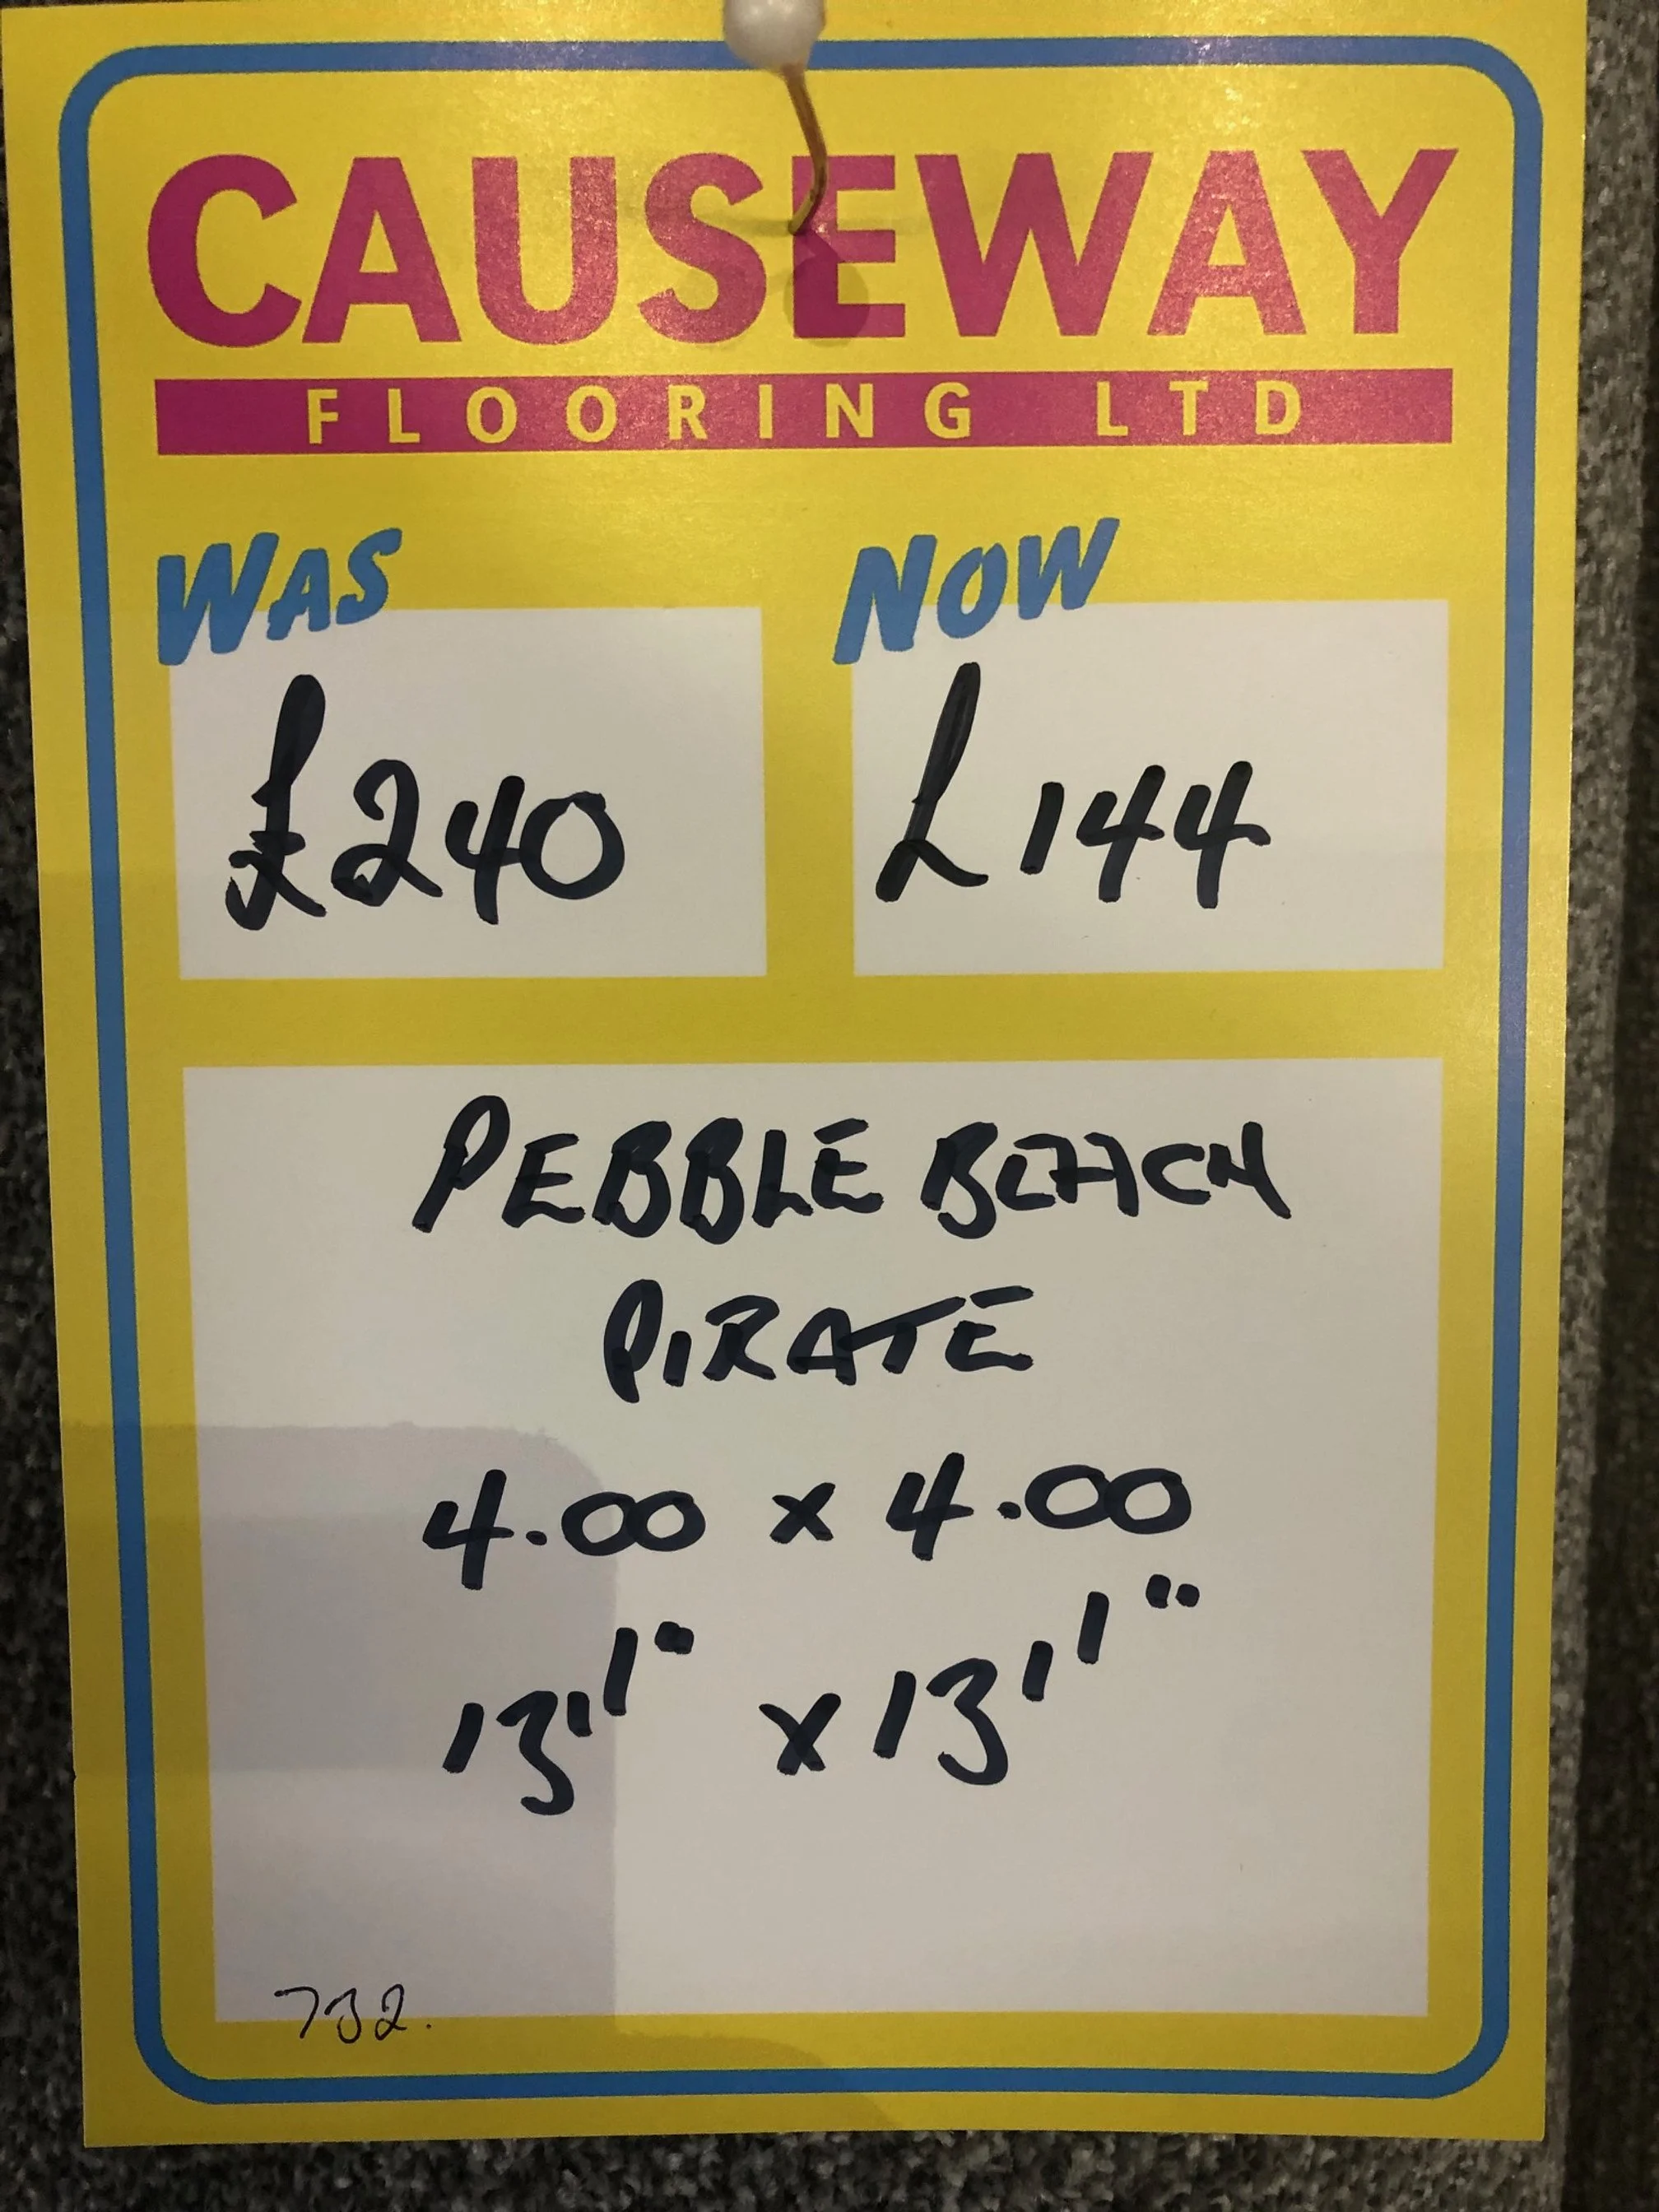 CAUSEWAY
FLOORING LTD
WAS NOW
£240 £144
PEBBLE BEACH
PIRATE
4.00 x 4.00
13'1" x 13'1"
732.